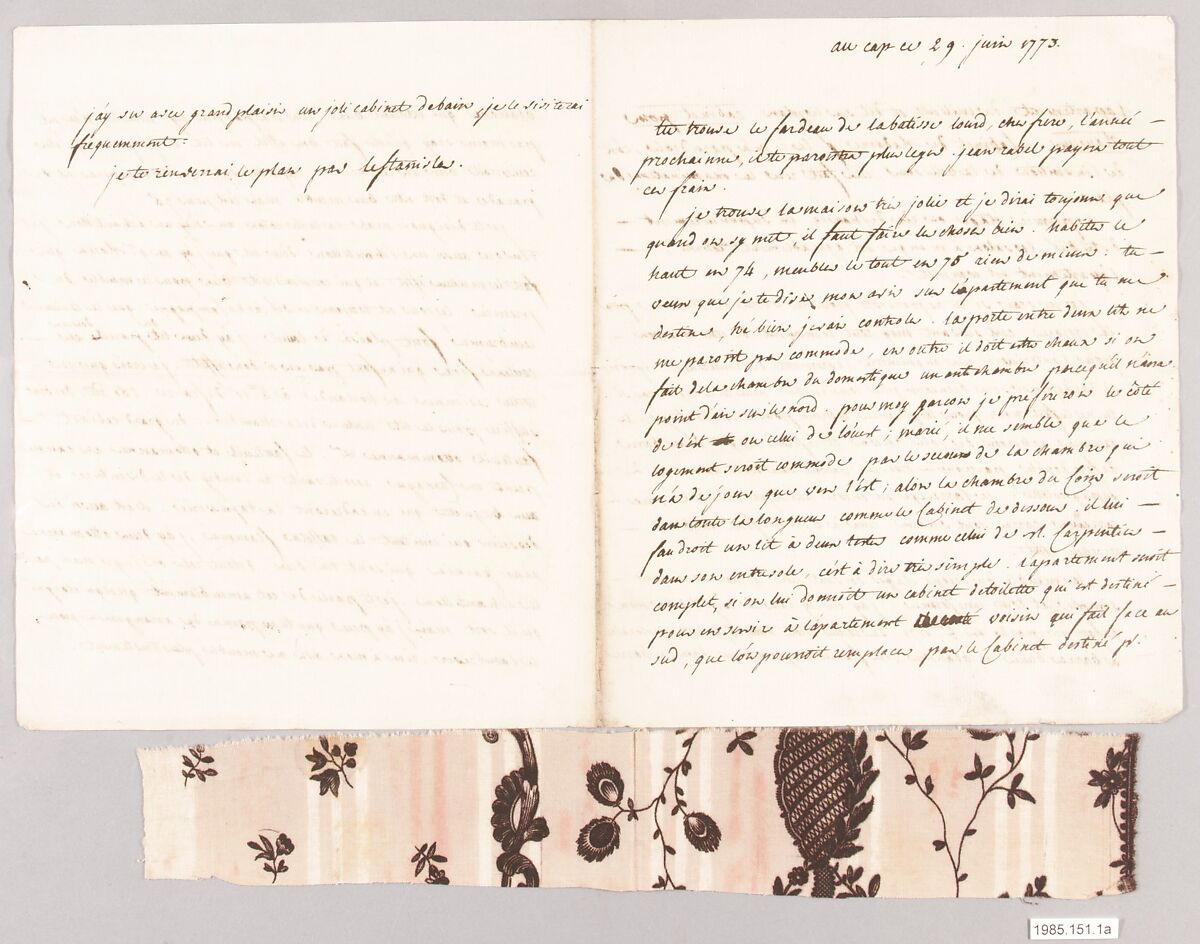 j'ay vu avec grand plaisir un joli cabinet debain, je le visiterai
frequemment.
je te renverrai le plan par le stanislas.
au cap ce 29. juin 1773.
tu trouve le fardeau de la batisse lourd, cher frere, l'anneé —
prochainne, il te paroitra plus leger. jean rabel payera tout
ces frais.
je trouve la maison tres jolie et je dirai toujour que
quand on sy met, il faut faire les choses bien. habiter le
haut en 74, meubler le tout en 75 rien de mieux. tu —
veux que je te dise mon avis sur l'apartement que tu me
destine, hé bien je vais controler. la porte entre deux lit ne
me paroit pas commode, en outre il doit etre chaux si on
fait de la chambre du domestique un antichambre parcequ'il n'aura
point d'air sur le nord. pour moy garçon je préférerois le côté
de l'est ou celui de l'ouest; marié, il me semble que ce
logement seroit commode par le secours de la chambre qui
n'a de jour que vers l'est; alors la chambre du coin seroit
dans toute la longueur comme le Cabinet de dessous. il lui —
faudroit un lit à deux testes comme celui de M. Carpentier —
dans son entresole, c'ést à dire tres simple. l'apartement seroit
complet, si on lui donnoit un cabinet detoilette qui est destiné —
pour en servir à l'apartement voisin qui fait face au
sud, que l'on pourroit remplacer par le Cabinet destiné pr.
1985.151.1a